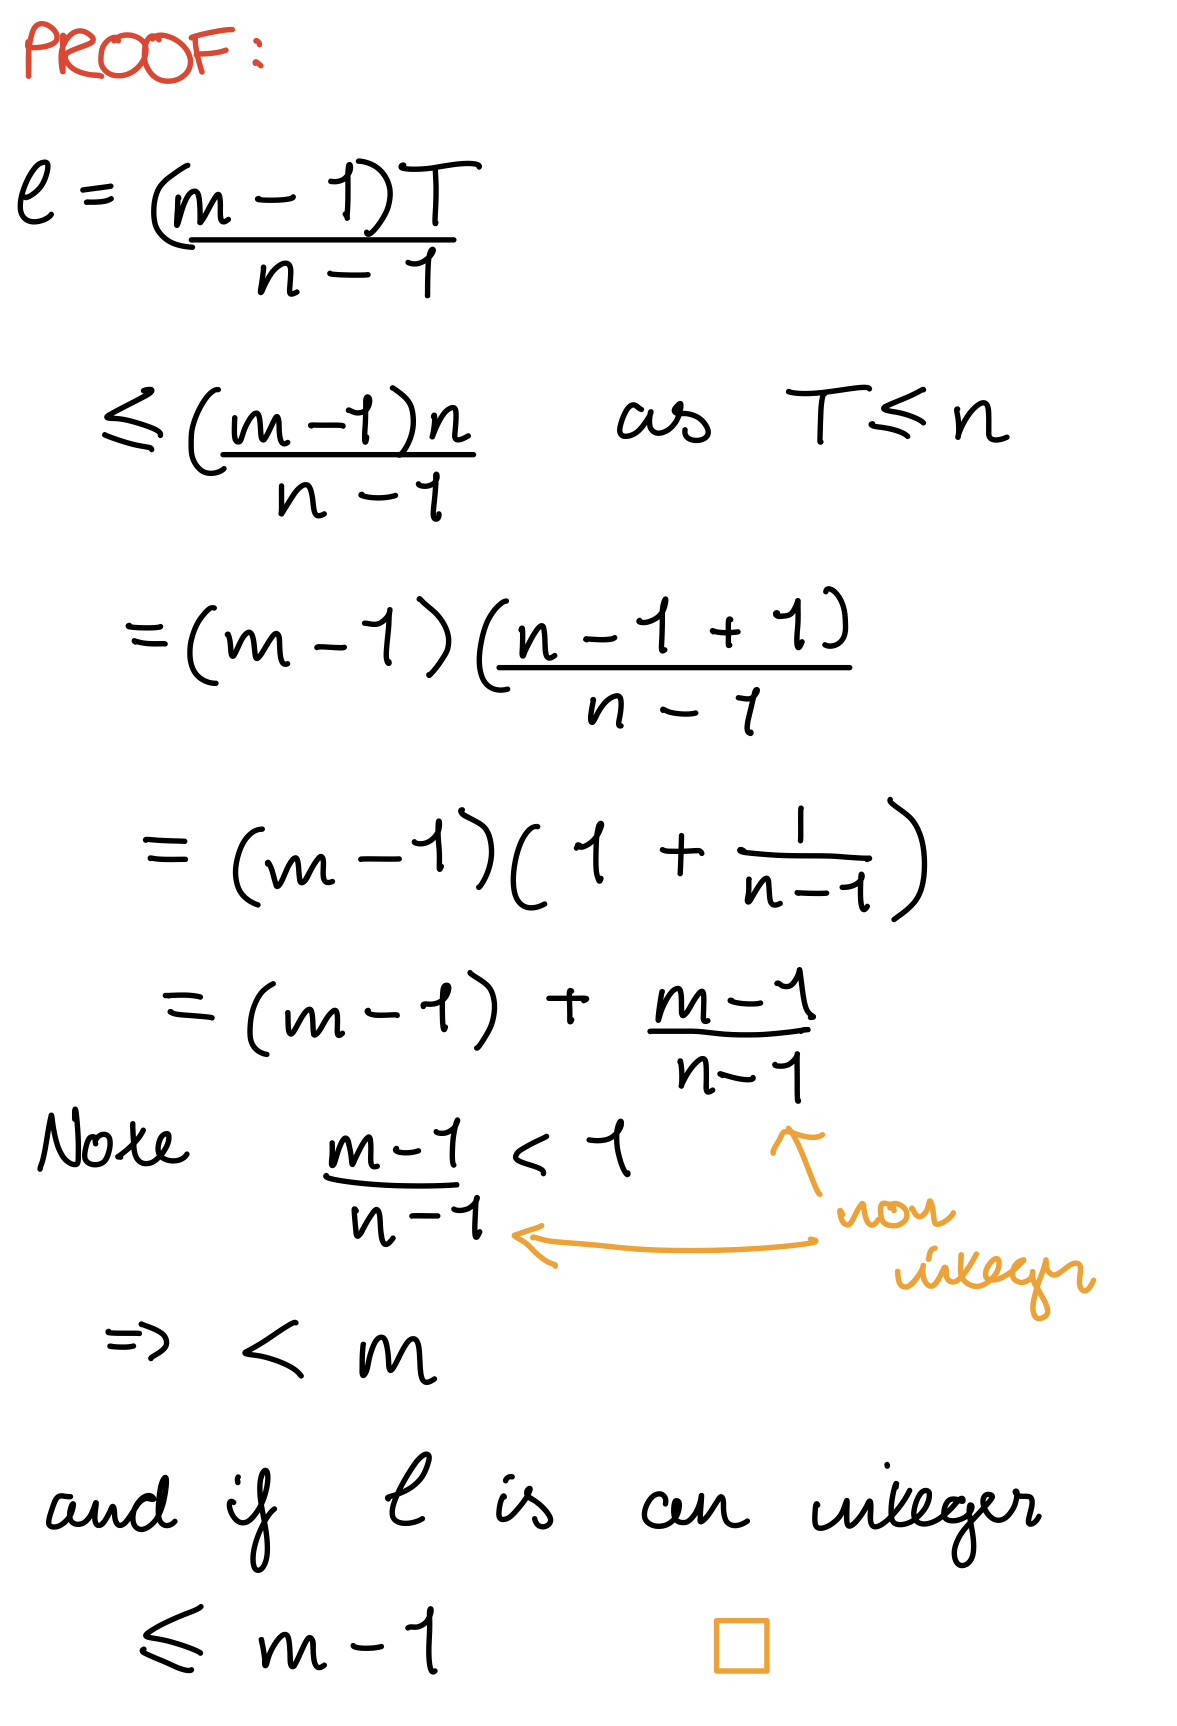 PROOF:
l = (m - 1)T / n - 1
≤ (m - 1)n / n - 1 as T ≤ n
= (m - 1) (n - 1 + 1) / n - 1
= (m - 1)(1 + 1 / n - 1)
= (m - 1) + m - 1 / n - 1
Note m - 1 / n - 1 < 1
non
integr
=> < m
and if l is an integer
≤ m - 1 □